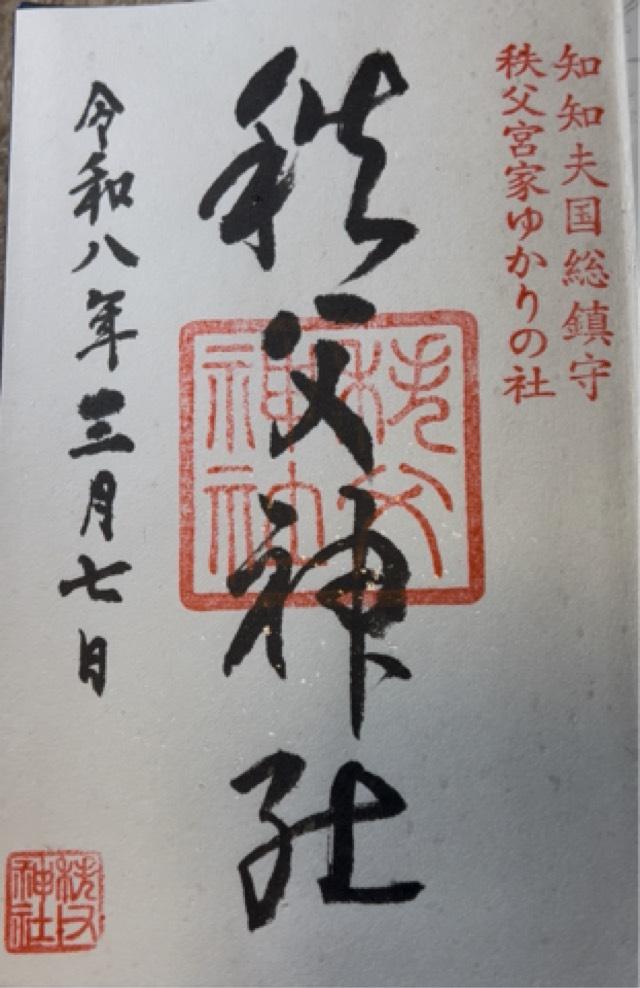 知知夫国総鎮守
秩父宮家ゆかりの社
秩父神社
秩父神社
令和八年三月七日
秩父神社